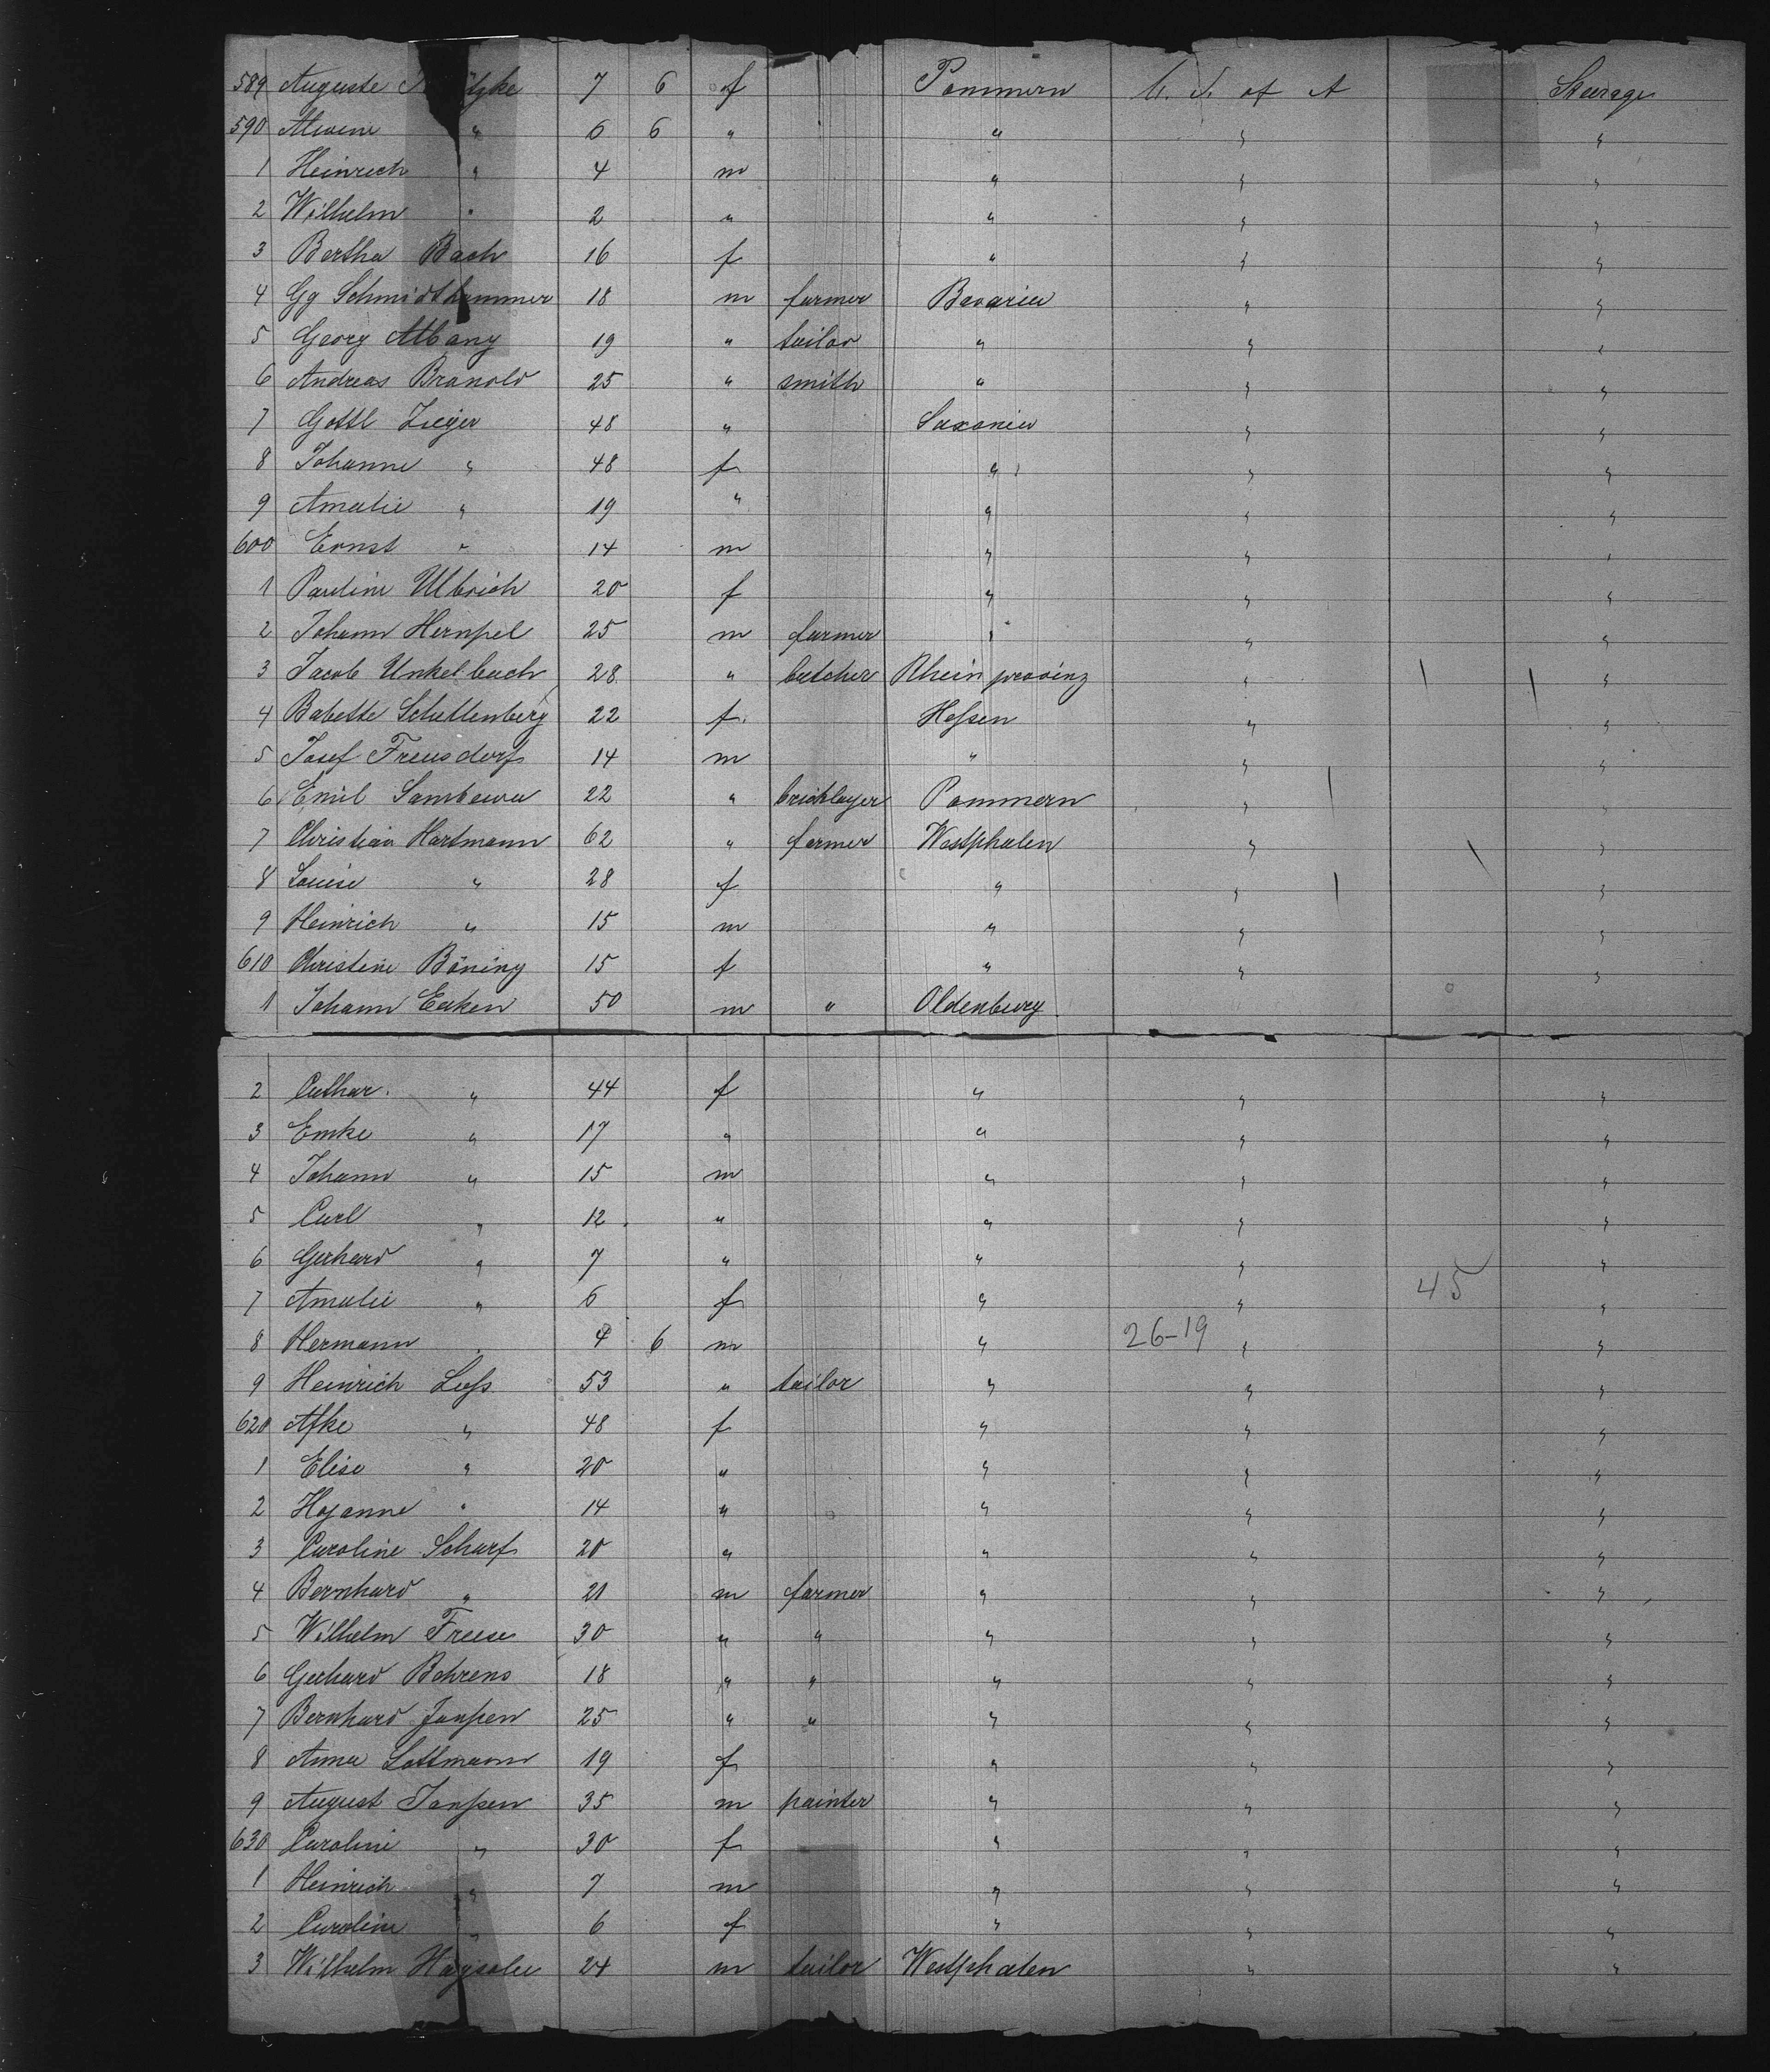 589 Auguste 7 6 f Pommern U. S. of A Steerage
590 Alwine " 6 6 " " " "
1 Heinrich " 4 m " " "
2 Wilhelm " 2 " " " "
3 Bertha Bach 16 f " " "
4 Gg Schmidthammer 18 m farmer Bavaria " "
5 Georg Albany 19 " tailor " " "
6 Andreas Branold 25 " smith " " "
7 Gottl Zieger 48 " Saxonia " "
8 Johanne " 48 f " " "
9 Amalie " 19 " " " "
600 Ernst " 14 m " " "
1 Pauline Ulbrich 20 f " " "
2 Johann Hempel 25 m farmer " " "
3 Jacob Unkelbach 28 " butcher Rheinprovinz " "
4 Babette Schellenberg 22 f. Hessen " "
5 Josef Freusdorf 14 m " " "
6 Emil 22 " bricklayer Pommern " "
7 Christian Hartmann 62 " farmer Westphalen " "
8 Louise " 28 f " " "
9 Heinrich " 15 m " " "
610 Christine Böning 15 f " " "
1 Johann Eeken 50 m " Oldenburg
2 Cathar. " 44 f " " "
3 Emke " 17 " " " "
4 Johann " 15 m " " "
5 Carl " 12 " " " "
6 Gerhard " 7 " " " "
7 Amalie " 6 f " " 45 "
8 Hermann " 4 6 m " 26-19 " "
9 Heinrich 53 " tailor " " "
620 Afke " 48 f " " "
1 Elise " 20 " " " "
2 Hojanne " 14 " " " "
3 Caroline Scharf 20 " " " "
4 Bernhard " 21 m farmer " " "
5 Wilhelm Freese 30 " " " " "
6 Gerhard Behrens 18 " " " " "
7 Bernhard Janssen 25 " " " " "
8 Anna Lottmann 19 f " " "
9 August Janssen 35 m painter " " "
630 Caroline " 30 f " " "
1 Heinrich " 7 m " " "
2 Caroline " 6 f " " "
3 Wilhelm 24 m tailor Westphalen " "